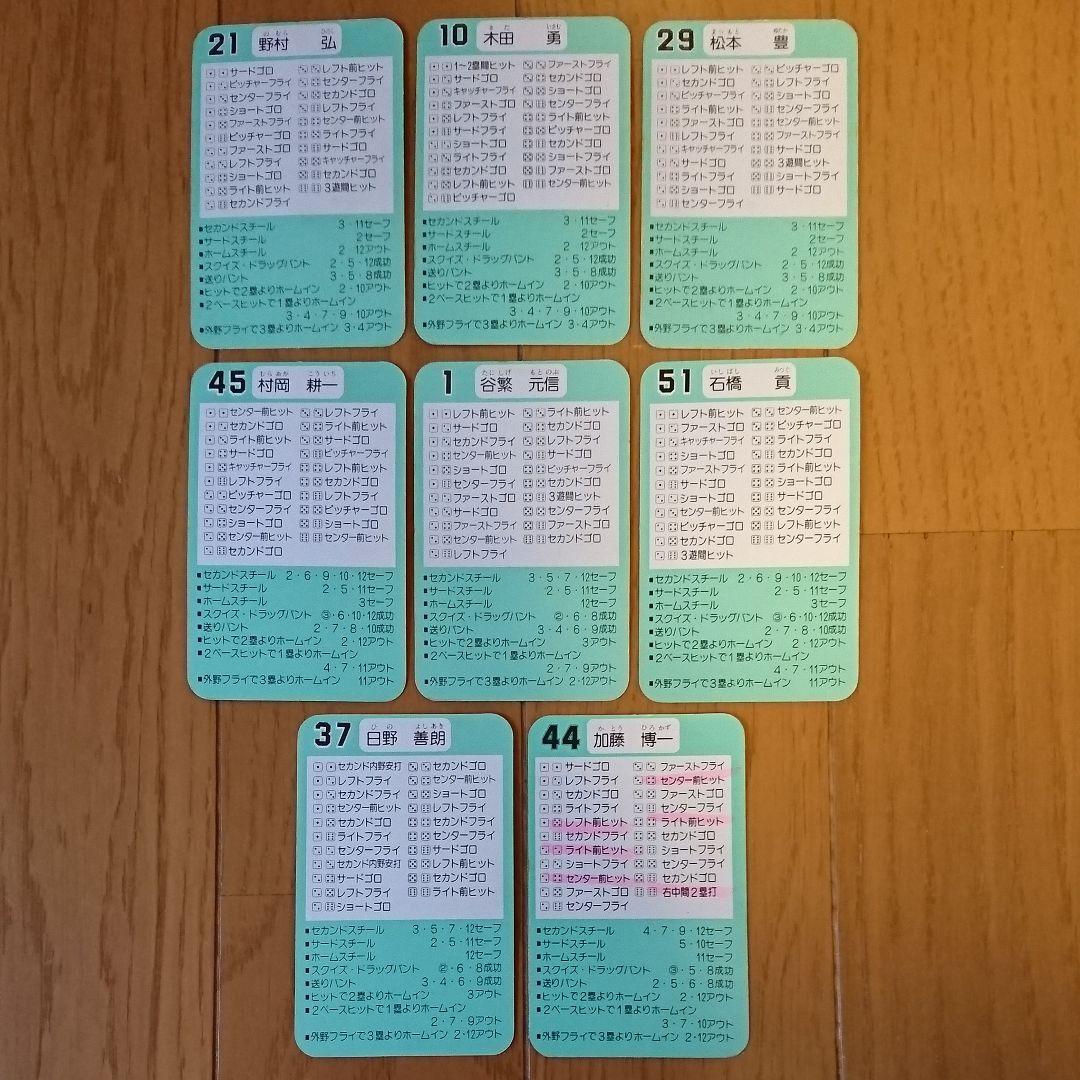 21 野村 弘
のむら ひろし
サードゴロ
ピッチャーフライ
センターフライ
ショートゴロ
ファーストフライ
ピッチャーゴロ
ファーストゴロ
レフトフライ
ショートゴロ
ライト前ヒット
セカンドフライ
レフト前ヒット
センターフライ
セカンドゴロ
レフトフライ
センター前ヒット
ライトフライ
サードゴロ
キャッチャーフライ
セカンドゴロ
3遊間ヒット
■セカンドスチール 3・11セーフ
■サードスチール 2セーフ
■ホームスチール 2・12アウト
■スクイズ・ドラッグバント 2・5・12成功
■送りバント 3・5・8成功
■ヒットで2塁よりホームイン 2・10アウト
■2ベースヒットで1塁よりホームイン
3・4・7・9・10アウト
■外野フライで3塁よりホームイン 3・4アウト
10 木田 勇
きだ いさむ
1〜2塁間ヒット
サードゴロ
キャッチャーフライ
ファーストゴロ
レフトフライ
サードフライ
ショートゴロ
ライトフライ
セカンドゴロ
レフト前ヒット
ピッチャーゴロ
ファーストフライ
セカンドゴロ
ショートゴロ
センターフライ
ライト前ヒット
ピッチャーゴロ
セカンドゴロ
ショートフライ
ファーストゴロ
センター前ヒット
■セカンドスチール 3・11セーフ
■サードスチール 2セーフ
■ホームスチール 2・12アウト
■スクイズ・ドラッグバント 2・5・12成功
■送りバント 3・5・8成功
■ヒットで2塁よりホームイン 2・10アウト
■2ベースヒットで1塁よりホームイン
3・4・7・9・10アウト
■外野フライで3塁よりホームイン 3・4アウト
29 松本 豊
まつもと ゆたか
レフト前ヒット
セカンドゴロ
ピッチャーフライ
ライト前ヒット
ファーストゴロ
レフトフライ
キャッチャーフライ
サードゴロ
ライトフライ
ショートゴロ
センターフライ
ピッチャーゴロ
レフトフライ
ショートゴロ
センターフライ
センター前ヒット
ファーストフライ
サードゴロ
3遊間ヒット
ショートフライ
サードゴロ
■セカンドスチール 3・11セーフ
■サードスチール 2セーフ
■ホームスチール 2 12アウト
■スクイズ・ドラッグバント 2・5・12成功
■送りバント 3・5・8成功
■ヒットで2塁よりホームイン 2・10アウト
■2ベースヒットで1塁よりホームイン
3・4・7・9・10アウト
■外野フライで3塁よりホームイン 3・4アウト
45 村岡 耕一
むらおか こういち
センター前ヒット
セカンドゴロ
ライト前ヒット
サードゴロ
キャッチャーフライ
レフトフライ
ピッチャーゴロ
センターフライ
ショートゴロ
センター前ヒット
セカンドゴロ
レフトフライ
ライト前ヒット
サードゴロ
ピッチャーフライ
レフト前ヒット
セカンドゴロ
レフトフライ
ピッチャーゴロ
ショートゴロ
センター前ヒット
■セカンドスチール 2・6・9・10・12セーフ
■サードスチール 2・5・11セーフ
■ホームスチール 3セーフ
■スクイズ・ドラッグバント ③・6・10・12成功
■送りバント 2・7・8・10成功
■ヒットで2塁よりホームイン 2・12アウト
■2ベースヒットで1塁よりホームイン
4・7・11アウト
■外野フライで3塁よりホームイン 11アウト
1 谷繁 元信
たにしげ もとのぶ
レフト前ヒット
サードゴロ
セカンドフライ
センター前ヒット
ショートゴロ
センターフライ
ファーストゴロ
サードゴロ
ファーストフライ
センター前ヒット
レフトフライ
ライト前ヒット
セカンドゴロ
レフトフライ
サードゴロ
ピッチャーフライ
ピッチャーゴロ
3遊間ヒット
センターフライ
ファーストゴロ
セカンドゴロ
■セカンドスチール 3・5・7・12セーフ
■サードスチール 2・5・11セーフ
■ホームスチール 12セーフ
■スクイズ・ドラッグバント ②・6・8成功
■送りバント 3・4・6・9成功
■ヒットで2塁よりホームイン 3アウト
■2ベースヒットで1塁よりホームイン
2・7・9アウト
■外野フライで3塁よりホームイン 2・12アウト
51 石橋 貢
いしばし みつぐ
レフト前ヒット
ファーストゴロ
キャッチャーフライ
ショートゴロ
ファーストフライ
サードゴロ
ショートゴロ
センター前ヒット
ピッチャーゴロ
レフトフライ
3遊間ヒット
センター前ヒット
ピッチャーゴロ
ライトフライ
セカンドゴロ
ライト前ヒット
ショートゴロ
サードゴロ
センターフライ
レフト前ヒット
センターフライ
■セカンドスチール 2・6・9・10・12セーフ
■サードスチール 2・5・11セーフ
■ホームスチール 3セーフ
■スクイズ・ドラッグバント ③・6・10・12成功
■送りバント 2・7・8・10成功
■ヒットで2塁よりホームイン 2・12アウト
■2ベースヒットで1塁よりホームイン
4・7・11アウト
■外野フライで3塁よりホームイン 11アウト
37 日野 善朗
ひの よしあき
セカンド内野安打
レフトフライ
セカンドフライ
センター前ヒット
セカンドゴロ
ライトフライ
センターフライ
セカンド内野安打
サードゴロ
レフトフライ
ショートゴロ
セカンドゴロ
センター前ヒット
ショートゴロ
レフトフライ
セカンドフライ
センターフライ
サードゴロ
レフト前ヒット
セカンドゴロ
ライト前ヒット
■セカンドスチール 3・5・7・12セーフ
■サードスチール 2・5・11セーフ
■ホームスチール 12セーフ
■スクイズ・ドラッグバント ②・6・8成功
■送りバント 3・4・6・9成功
■ヒットで2塁よりホームイン 3アウト
■2ベースヒットで1塁よりホームイン
2・7・9アウト
■外野フライで3塁よりホームイン 2・12アウト
44 加藤 博一
かとう ひろかず
サードゴロ
レフトフライ
セカンドゴロ
ライトフライ
レフト前ヒット
セカンドフライ
ライト前ヒット
ショートフライ
センター前ヒット
ファーストゴロ
センターフライ
ファーストフライ
センター前ヒット
ファーストゴロ
センターフライ
ライト前ヒット
セカンドゴロ
ショートフライ
センターフライ
セカンドゴロ
右中間2塁打
■セカンドスチール 4・7・9・12セーフ
■サードスチール 5・10セーフ
■ホームスチール 11セーフ
■スクイズ・ドラッグバント ③・5・8成功
■送りバント 2・5・6・8成功
■ヒットで2塁よりホームイン 2・12アウト
■2ベースヒットで1塁よりホームイン
3・7・10アウト
■外野フライで3塁よりホームイン 2・12アウト